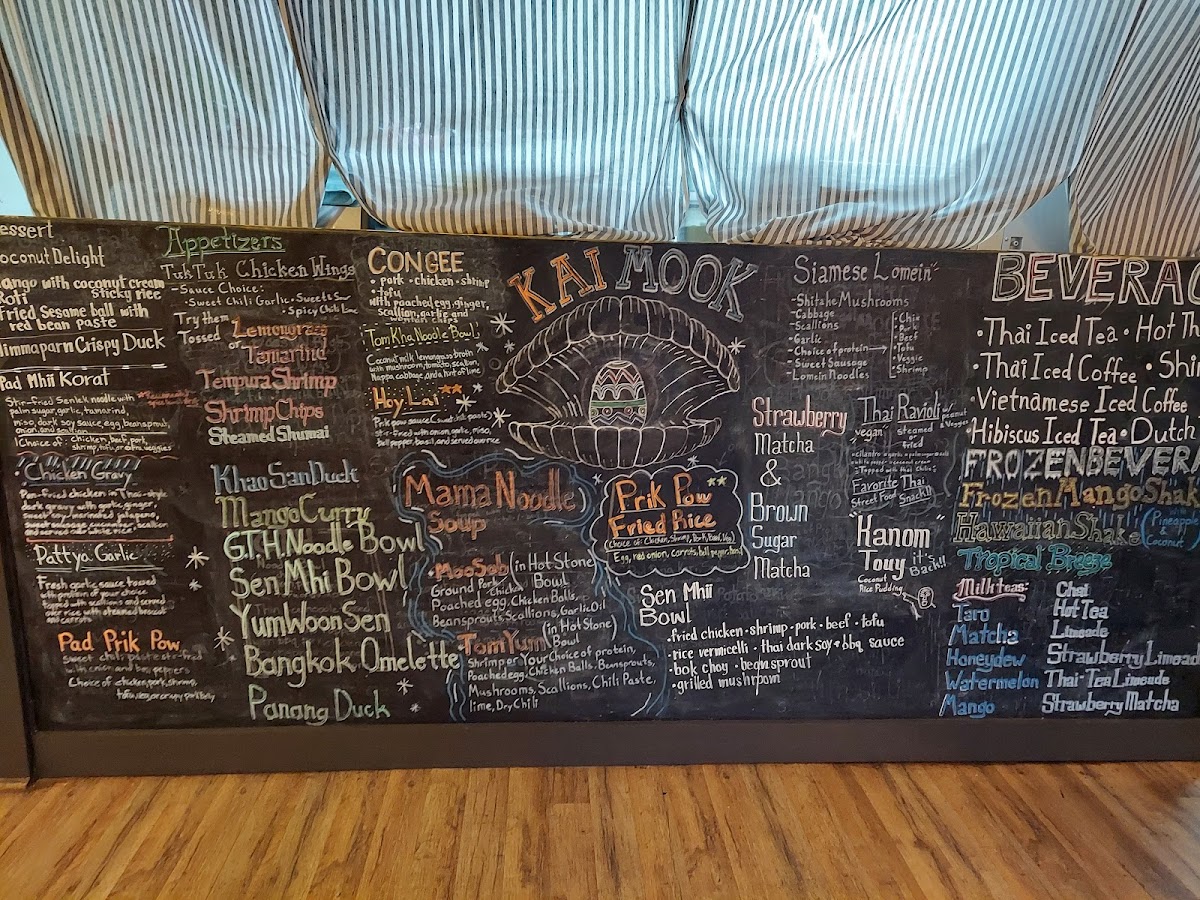 essert
oconut Delight
ango with coconut cream
sticky rice
Roti
Fried Sesame ball with
red bean paste
immaparn Crispy Duck
Pad Mhii Korat
Stir-fried Senlek noodle with
palm sugar, garlic, tamarind,
miso, dark soy sauce, egg, beansprout,
onion, and scallion
Choice of: chicken, beef, pork,
shrimp, tofu, or extra veggies
Chicken Gravy
Pan-fried chicken in Thai-style
dark gravy with garlic, ginger,
soy, egg
sweet sausage cucumber, scallion
and served over white rice
Pattya Garlic
Fresh garlic sauce tossed
with protein of your choice
Topped with scallions and served
over rice with steamed broccoli
and carrots
Pad Prik Pow
sweet chili paste stir-fried
with onion and bell peppers
Choice of chicken, pork, shrimp,
tofu, veg, or crispy pork belly
Appetizers
TukTuk Chicken Wings
-Sauce Choice:
-Sweet Chili Garlic -Sweet & Sour
-Spicy Chili Lime
Try them
Tossed
Lemongrass
or
Tamarind
Tempura Shrimp
Shrimp Chips
Steamed Shumai
Khao San Duck
Mango Curry
G.T.H. Noodle Bowl
Sen Mhi Bowl
Yum Woon Sen
Bangkok Omelette
Panang Duck
CONGEE
• pork • chicken • shrimp
• tofu
with poached egg, ginger,
scallion, garlic and
wonton chips
Tom Kha Noodle Bowl
Coconut milk lemongrass broth
with mushroom, tomato, scallion,
Nappa cabbage, and a hint of lime
Hoy Lai
Prik pow sauce (sweet chili paste)
Stir-fried with onion, garlic, miso,
bell pepper, basil, and served over rice
KAI MOOK
Mama Noodle
Soup
• Moo Sab (in Hot Stone
Bowl
Ground Pork
Poached egg, Chicken Balls,
Beansprouts, Scallions, Garlic Oil
Tom Yum (in Hot Stone)
Bowl
Shrimp or Your Choice of protein,
Poached egg, Chicken Balls, Beansprouts,
Mushrooms, Scallions, Chili Paste,
lime, Dry Chili
Prik Pow
Fried Rice
Choice of: Chicken, Shrimp, Pork, Beef, Veg
Egg, red onion, carrots, bell pepper, basil
Sen Mhii
Bowl
• fried chicken • shrimp • pork • beef • tofu
• rice vermicelli • thai dark soy + bbq sauce
• bok choy • beansprout
• grilled mushroom
Strawberry
Matcha
&
Brown
Sugar
Matcha
Siamese Lomein
-Shitake Mushrooms
-Cabbage
-Scallions
-Garlic
-Choice of protein
-Sweet Sausage
-Lomein Noodles
• Chic
• Pork
• Beef
• Tofu
• Veggie
• Shrimp
Thai Ravioli
vegan
steamed
or
fried
w/ peanut
& Veggies
Topped with Thai Chilis
Favorite Thai
Street Food Snack!!
Hanom
Touy
it's
Back!!
Coconut
Rice Pudding
BEVERAG
• Thai Iced Tea • Hot Th
• Thai Iced Coffee • Shir
• Vietnamese Iced Coffee
• Hibiscus Iced Tea • Dutch
FROZEN BEVERA
Frozen Mango Shake
Hawaiian Shake (Pineapple
&
Coconut)
Tropical Breeze
Milk teas:
Taro
Matcha
Honeydew
Watermelon
Mango
Chai
Hot Tea
Limeade
Strawberry Limead
Thai-Tea Limeade
Strawberry Matcha